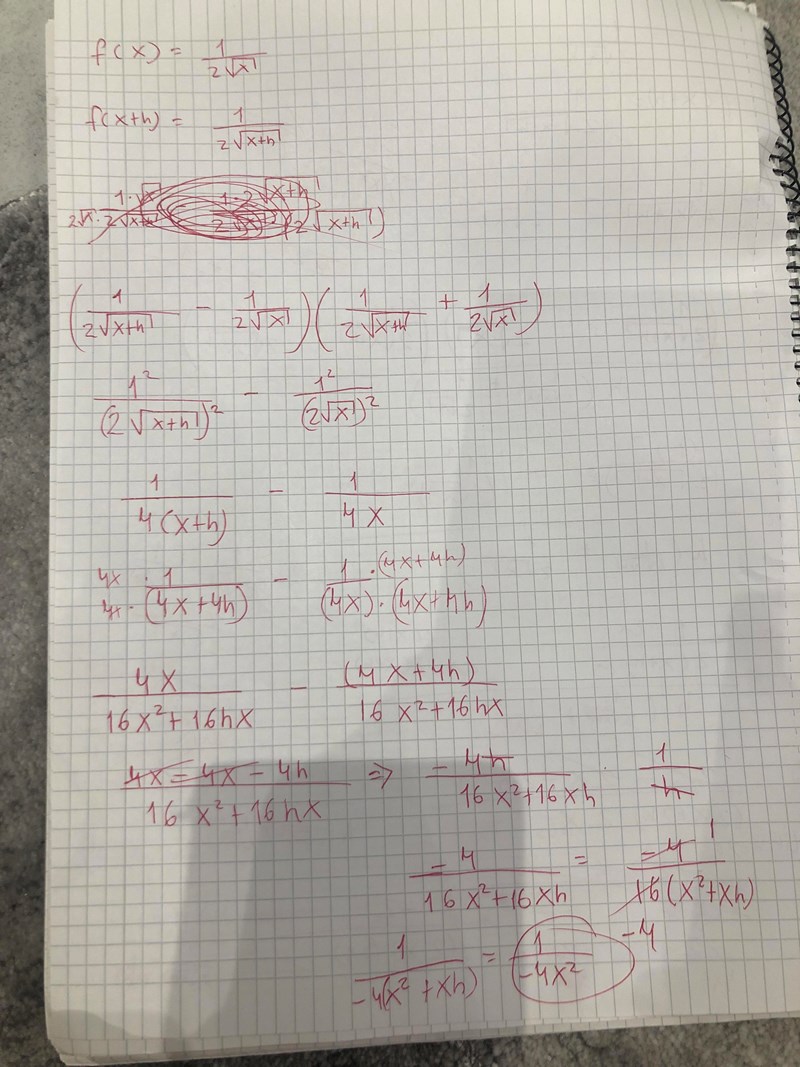 f(x) = 1/(2√x)
f(x+h) = 1/(2√(x+h))
(1/(2√(x+h)) - 1/(2√x)) (1/(2√(x+h)) + 1/(2√x))
1²/(2√(x+h))² - 1²/(2√x)²
1/(4(x+h)) - 1/(4x)
4x/4x · 1/(4x+4h) - 1·(4x+4h)/((4x)·(4x+4h))
4x/(16x²+16hx) - (4x+4h)/(16x²+16hx)
(4x-4x-4h)/(16x²+16hx) ⇒ -4h/(16x²+16xh) · 1/h
-4/(16x²+16xh) = -4 1/(16(x²+xh)) -4
1/(-4(x²+xh)) = 1/(-4x²)